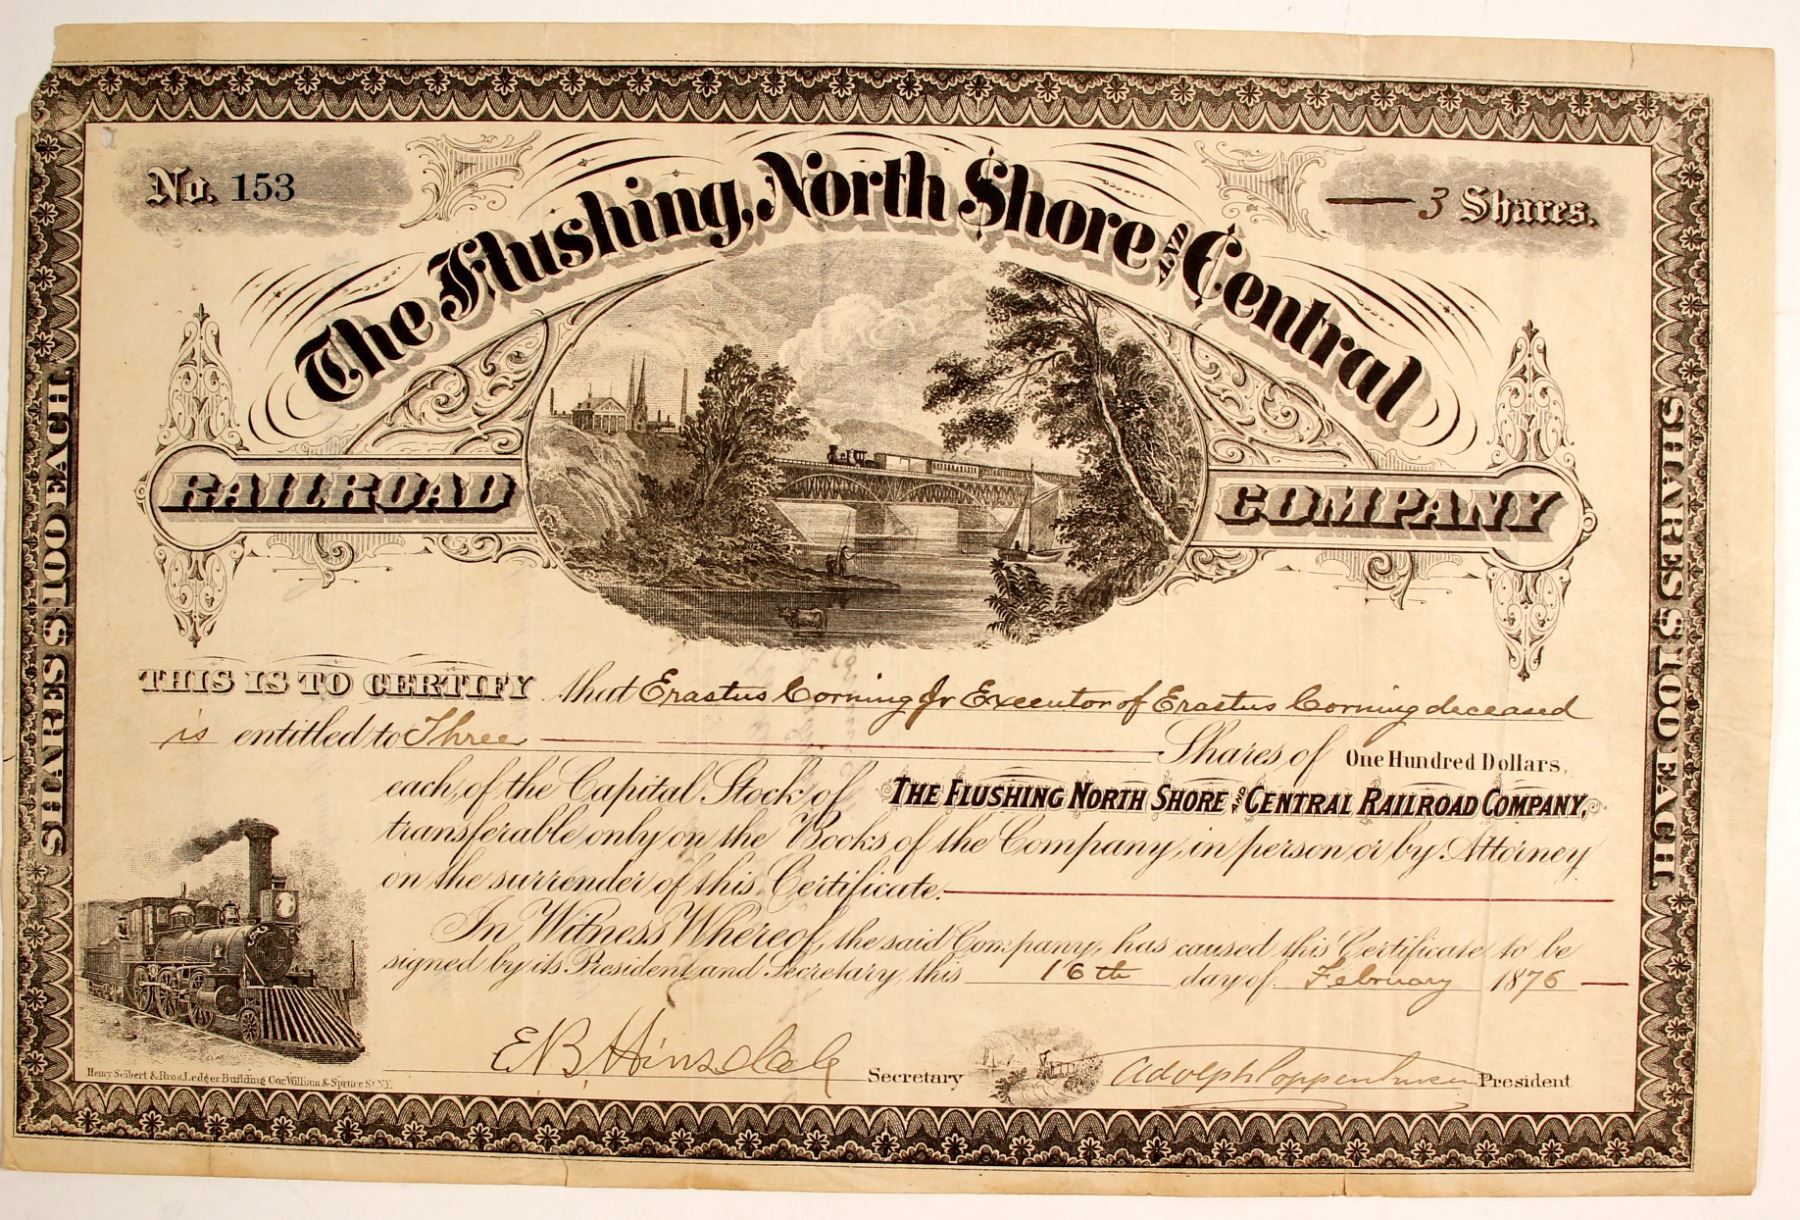 No. 153
3 Shares.
The Flushing, North Shore AND Central
RAILROAD COMPANY
SHARES $100 EACH
SHARES $100 EACH
THIS IS TO CERTIFY that Erastus Corning Jr Executor of Erastus Corning deceased
is entitled to Three Shares of One Hundred Dollars,
each, of the Capital Stock of THE FLUSHING NORTH SHORE AND CENTRAL RAILROAD COMPANY,
transferable only on the Books of the Company, in person or by Attorney
on the surrender of this Certificate.
In Witness Whereof, the said Company, has caused this Certificate to be
signed by its President and Secretary, this 16th day of February 1876
E B Hinsdale Secretary Adolph Poppenhusen President
Henry Seibert & Bros. Ledger Building Cor. William & Spruce St. N.Y.